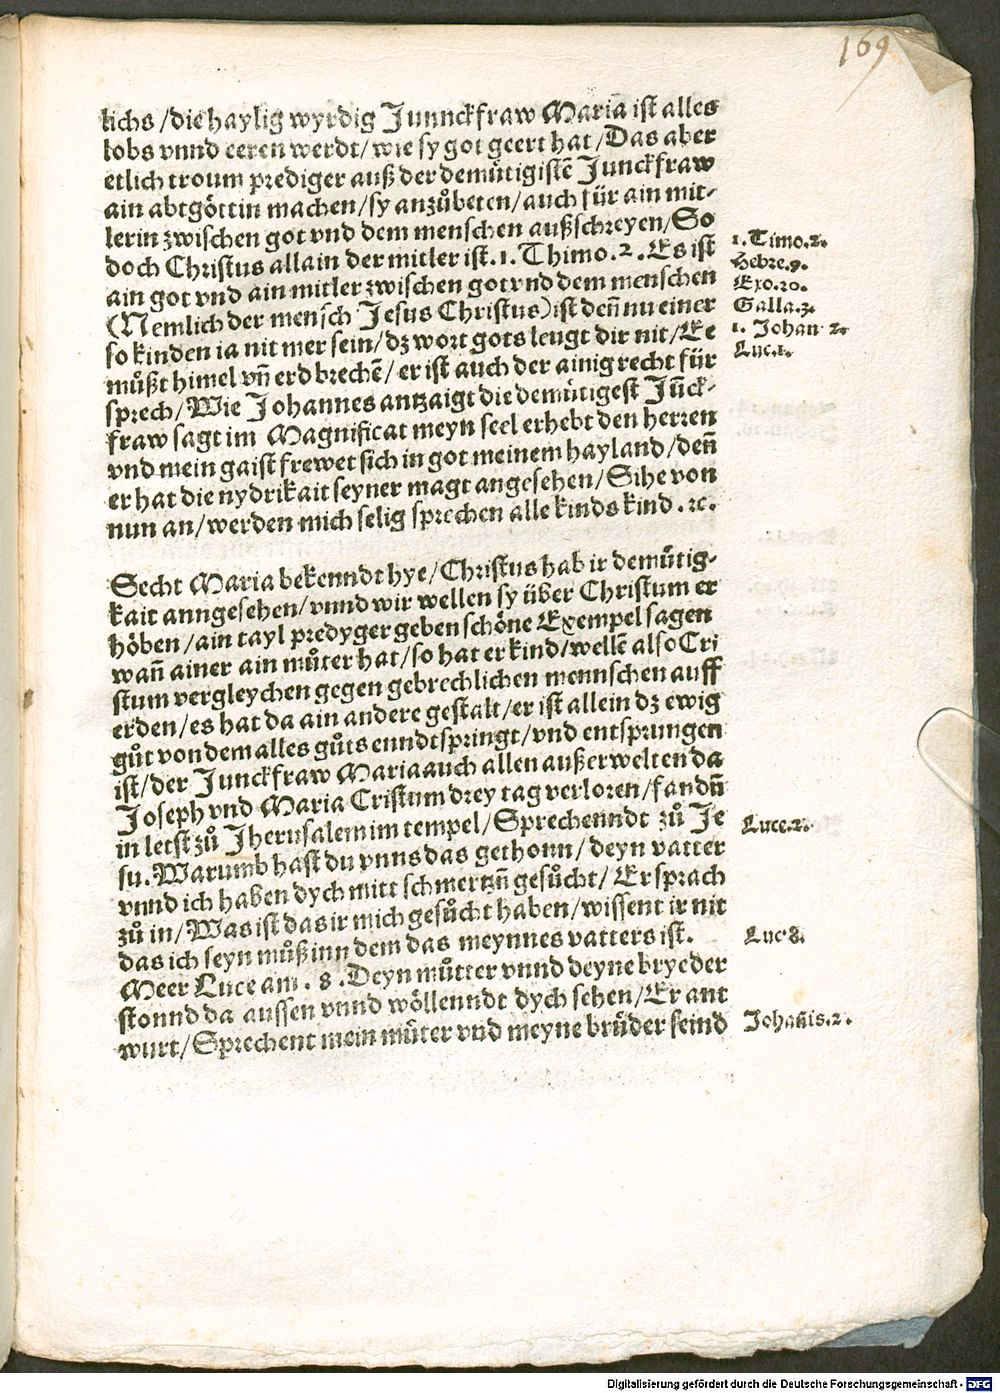 169
lichs / die haylig wyrdig Junnckfraw Maria ist alles
lobs vnnd eeren werdt / wie sy got geert hat / Das aber
etlich troum prediger auß der demuͤtigistẽ Junckfraw
ain abtgoͤttin machen / sy anzuͦbeten / auch fúr ain mit-
lerin zwischen got vnd dem menschen außschreyen / So
doch Christus allain der mitler ist. 1. Thimo. 2. Es ist
ain got vnd ain mitler zwischen got vnd dem menschen
(Nemlich der mensch Jesus Christus) ist deñ nu einer
so kinden ia nit mer sein / dz wort gots leugt dir nit / Ee
muͤßt himel vñ erd brechẽ / er ist auch der ainig recht fúr
sprech / Wie Johannes antzaigt die demuͤtigest Jũck-
fraw sagt im Magnificat meyn seel erhebt den herren
vnd mein gaist frewet sich in got meinem hayland / deñ
er hat die nydrikait seyner magt angesehen / Sihe von
nun an / werden mich selig sprechen alle kinds kind. ⁊c.
1. Timo. 2.
Hebre. 9.
Exo. 20.
Galla. 3.
1. Johan 2.
Luc. 1.
Secht Maria bekenndt hye / Christus hab ir demuͤtig-
kait anngesehen / vnnd wir wellen sy úber Christum er
hoͤben / ain tayl predyger geben schoͤne Exempel sagen
wañ ainer ain muͦter hat / so hat er kind / wellẽ also Cri
stum vergleychen gegen gebrechlichen mennschen auff
erden / es hat da ain andere gestalt / er ist allein dz ewig
guͦt von dem alles guͦts enndtspringt / vnd entsprungen
ist / der Junckfraw Maria auch allen außerwelten da
Joseph vnd Maria Cristum drey tag verloren / fandñ
in letst zuͦ Jherusalem im tempel / Sprechenndt zuͦ Je
su. Warumb hast du vnns das gethonn / deyn vatter
vnnd ich haben dych mitt schmertzñ gesuͦcht / Er sprach
zuͦ in / Was ist das ir mich gesuͦcht haben / wissent ir nit
das ich seyn muͦß inn dem das meynnes vatters ist.
Meer Luce am. 8. Deyn muͤtter vnnd deyne bryeder
stonnd da aussen vnnd woͤllenndt dych sehen / Er ant
wurt / Sprechent mein muͦter vnd meyne bruͤder seind
Luce. 2.
Luc 8.
Johañis. 2.
Digitalisierung gefördert durch die Deutsche Forschungsgemeinschaft - DFG